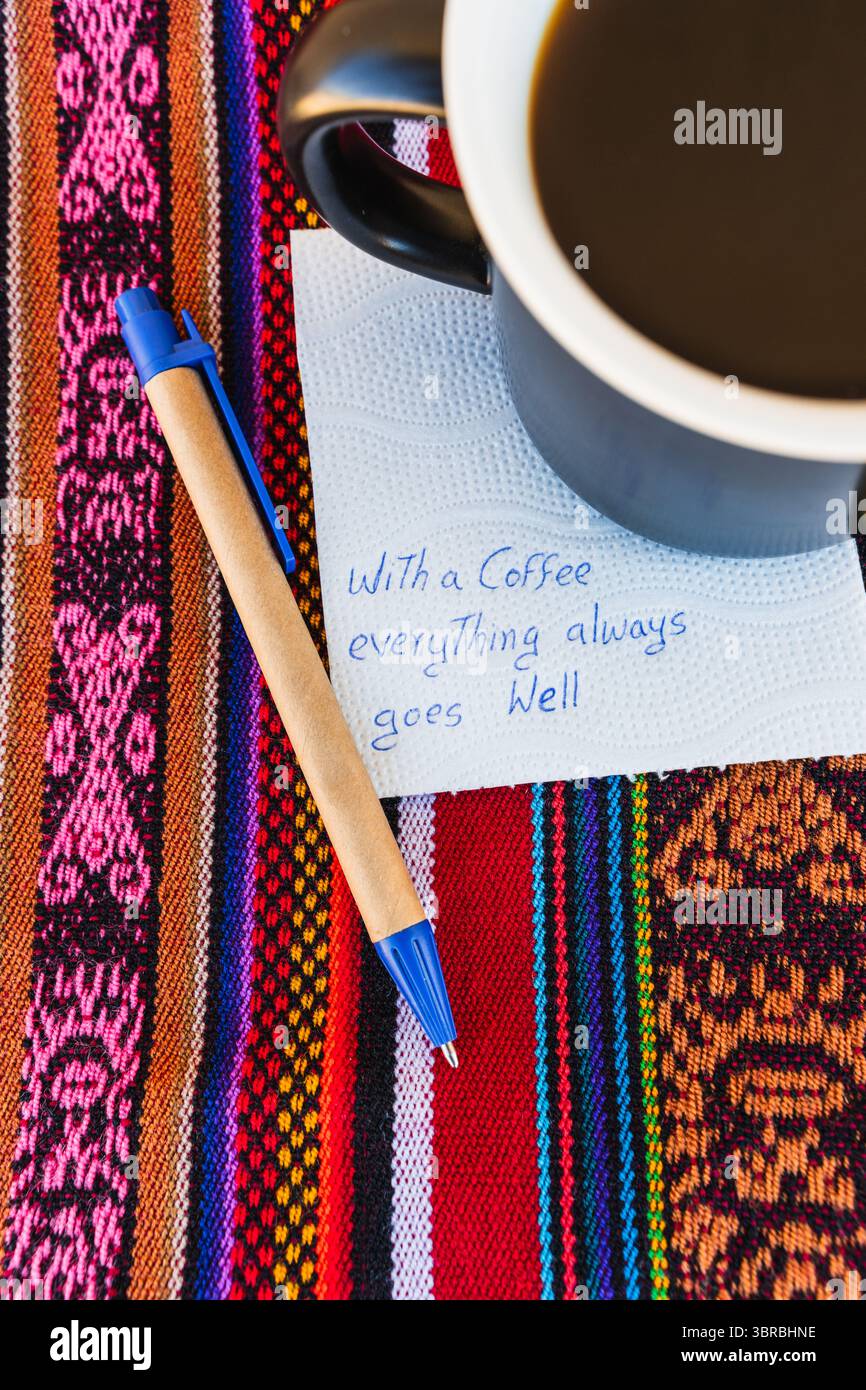 alamy
with a Coffee
everyThing always
goes Well
alamy
Image ID: 3BRBHNE
www.alamy.com